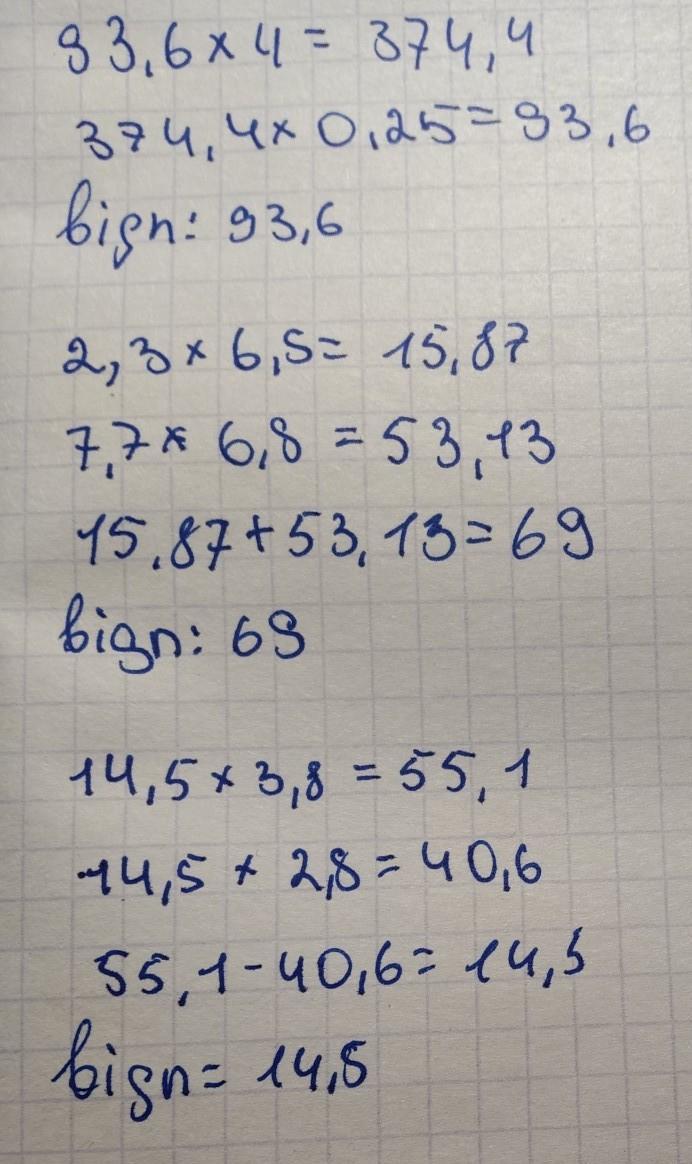 93,6 × 4 = 374,4
374,4 × 0,25 = 93,6
відп: 93,6
2,3 × 6,5 = 15,87
7,7 × 6,8 = 53,13
15,87 + 53,13 = 69
відп: 69
14,5 × 3,8 = 55,1
14,5 × 2,8 = 40,6
55,1 - 40,6 = 14,5
відп = 14,5